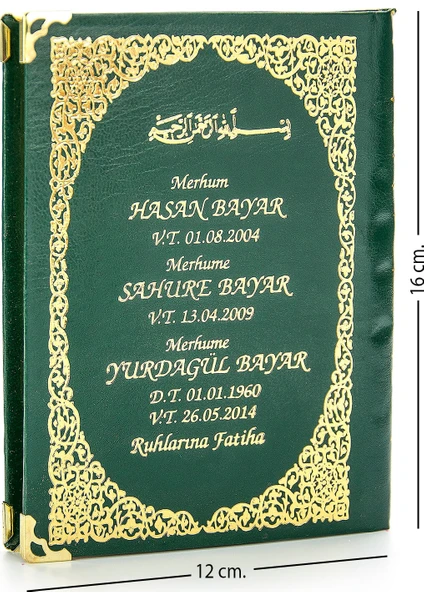 بسم الله الرحمن الرحيم
Merhum
HASAN BAYAR
V.T. 01.08.2004
Merhume
SAHURE BAYAR
V.T. 13.04.2009
Merhume
YURDAGÜL BAYAR
D.T. 01.01.1960
V.T. 26.05.2014
Ruhlarına Fatiha
16 cm.
12 cm.